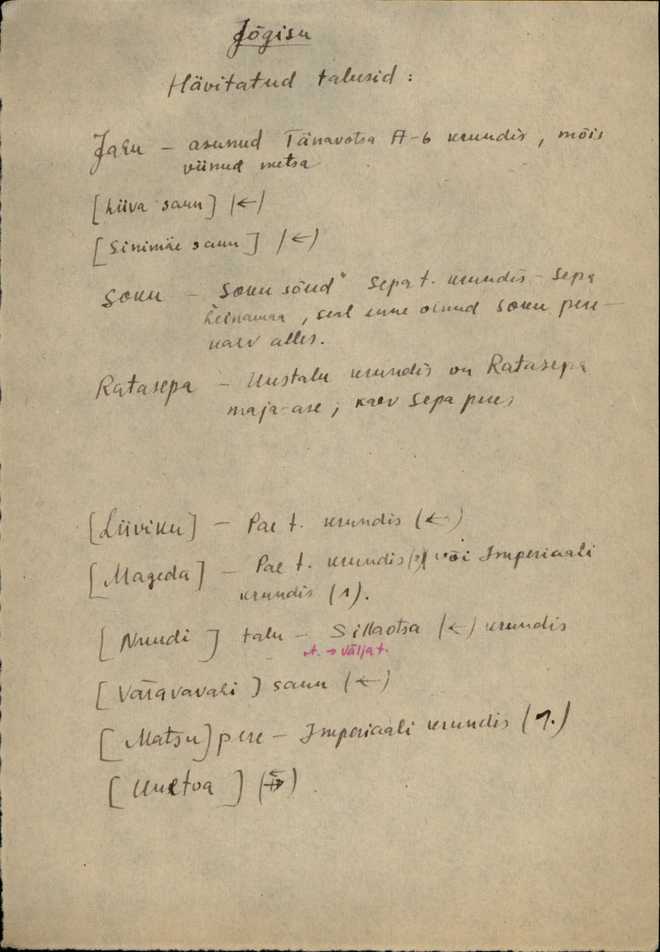 Jõgisu
Hävitatud talusid :
Jaku – asunud Tänavotsa A-6 krundis, mõis
viinud metsa
[Liiva saun] (←)
[Sinimäe saun] (←)
Soku – Soku sõud" Sepa t. krundis – Sepa
heinamaa, seal enne olnud Soku pere-
kaev alles.
Ratasepa – Uustalu krundis on Ratasepa
maja-ase; kaev Sepa peres
[Liiviku] – Pae t. krundis (←)
[Mageda] – Pae t. krundis või Imperiaali
krundis (1).
[Nuudi] talu – Sillaotsa (←) krundis
t. → väljat.
[Väravavahi] saun (←)
[Matsu] pere – Imperiaali krundis (1.)
[Uuetoa]